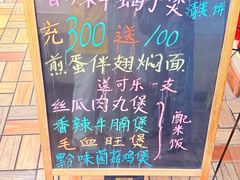 香辣牛蛙煲
清蒸饼
充300送100
煎蛋伴翅焖面
送可乐一支
丝瓜肉丸煲
香辣牛腩煲
毛血旺煲
黔味菌菇鸡煲
配米饭